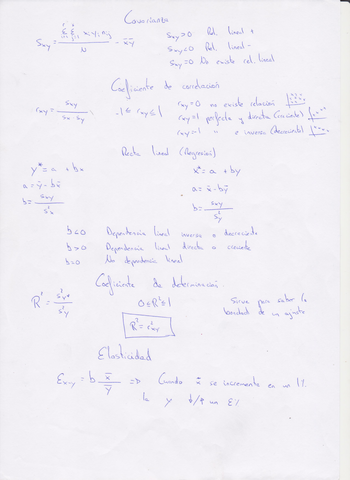 Covarianza
Sxy = ΣΣ xi yj nij / N - x̄ȳ
Sxy > 0 Rel. lineal +
Sxy < 0 Rel. lineal -
Sxy = 0 No existe rel. lineal
Coeficiente de correlación
rxy = Sxy / Sx · Sy , -1 ≤ rxy ≤ 1
rxy = 0 no existe relación
rxy = 1 perfecta y directa (creciente)
rxy = -1 " " e inversa (decreciente)
Recta lineal (Regresión)
y* = a + bx
a = ȳ - bx̄
b = Sxy / S²x
x* = a + by
a = x̄ - bȳ
b = Sxy / S²y
b < 0 Dependencia lineal inversa o decreciente
b > 0 Dependencia lineal directa o creciente
b = 0 No dependencia lineal
Coeficiente de determinación
R² = S²y* / S²y
0 ≤ R² ≤ 1
Sirve para saber la
bondad de un ajuste
R² = r²xy
Elasticidad
Ex-y = b x̄/ȳ => Cuando x se incrementa en un 1%
la y ↓/↑ un E%